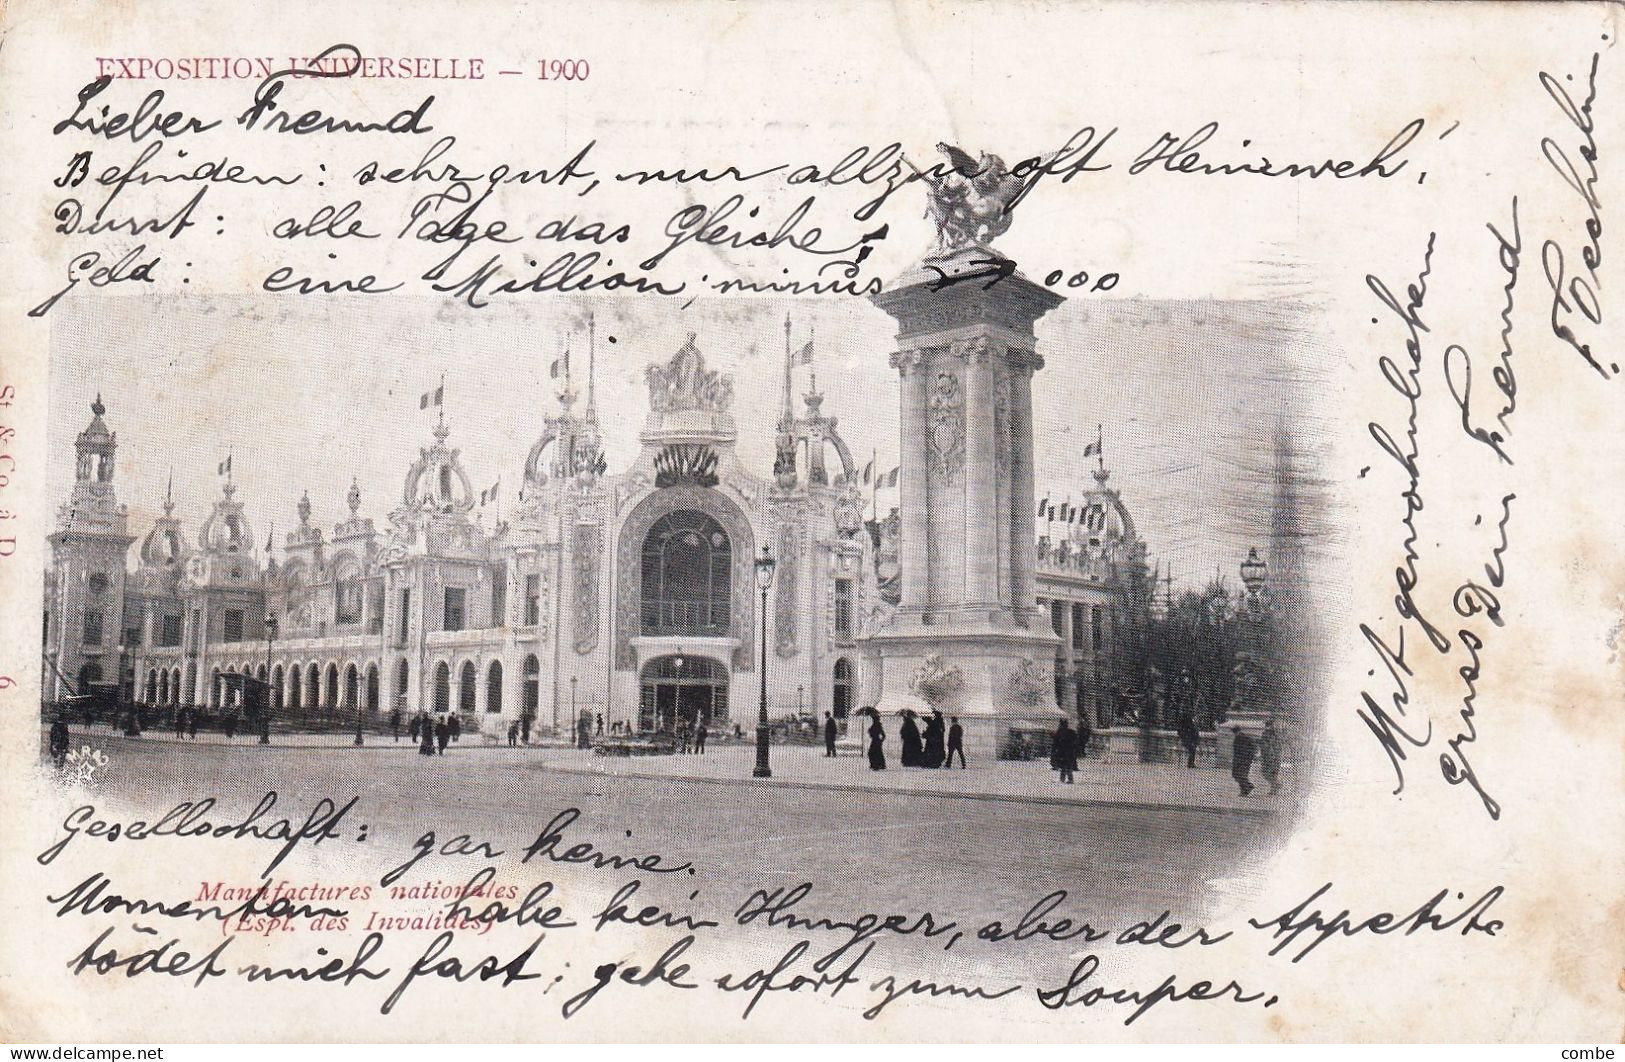 EXPOSITION UNIVERSELLE — 1900
Lieber Freund
Befinden: sehr gut, nur allzu oft Heimweh!
Durst: alle Tage das Gleiche!
Geld: eine Million, minus 000
Gesellschaft: gar keine.
Manufactures nationales
(Espl. des Invalides)
Momentan habe kein Hunger, aber der Appetite
tödet mich fast; gehe sofort zum Souper.
Mit gewöhnlichem
Gruss Dein Freund
F. Oechslin.
St. & Co. à D. 6
combe